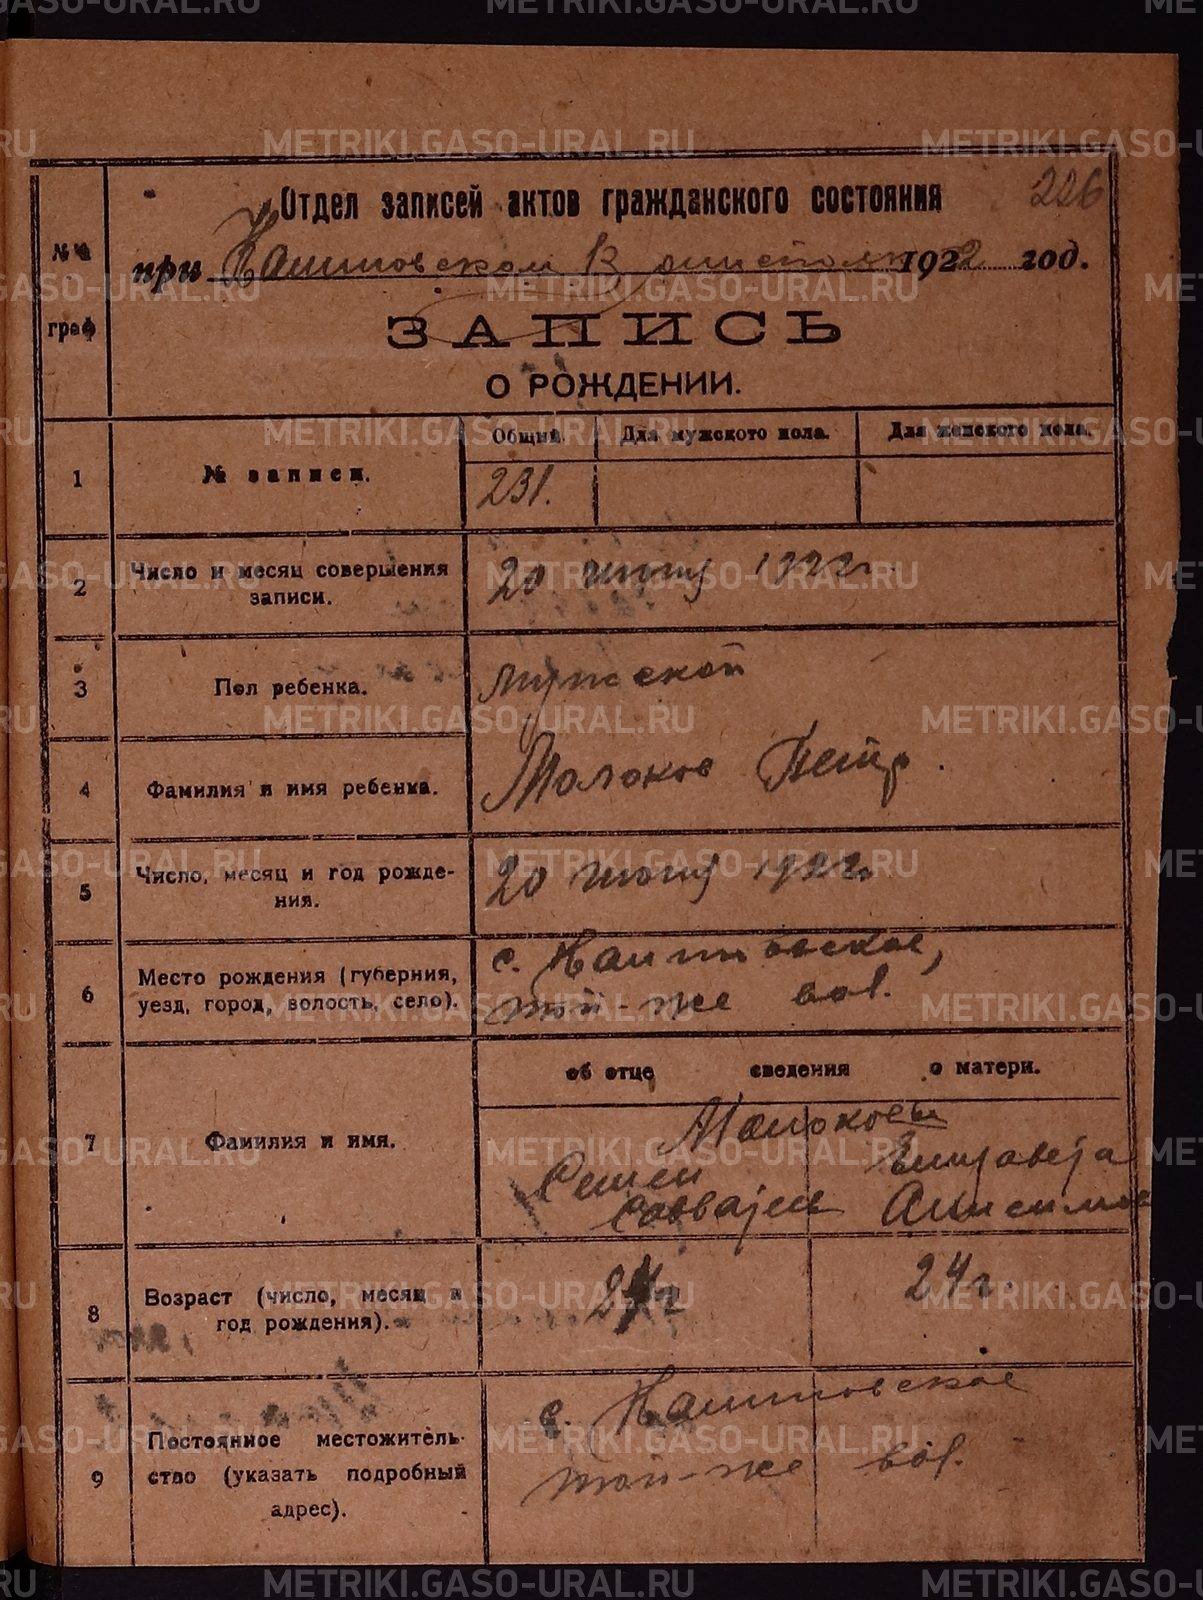 226
Отдел записей актов гражданского состояния
при Кашиновском В 1922 год.
№№ граф
ЗАПИСЬ
О РОЖДЕНИИ.
Общий. Для мужского пола. Для женского пола.
1 № записи. 231.
2 Число и месяц совершения записи. 20 1922г.
3 Пол ребенка. мужской
4 Фамилия и имя ребенка. Молоков Петр.
5 Число, месяц и год рожде-
ния. 20 1922г.
6 Место рождения (губерния,
уезд, город, волость, село).
с.
той-же вол.
об отце сведения о матери.
7 Фамилия и имя.
Молоковы
Семен Елизавета
Савватеев
8 Возраст (число, месяц и
год рождения). 24г 24г.
9 Постоянное местожитель-
ство (указать подробный
адрес).
с.
той-же вол.
METRIKI.GASO-URAL.RU